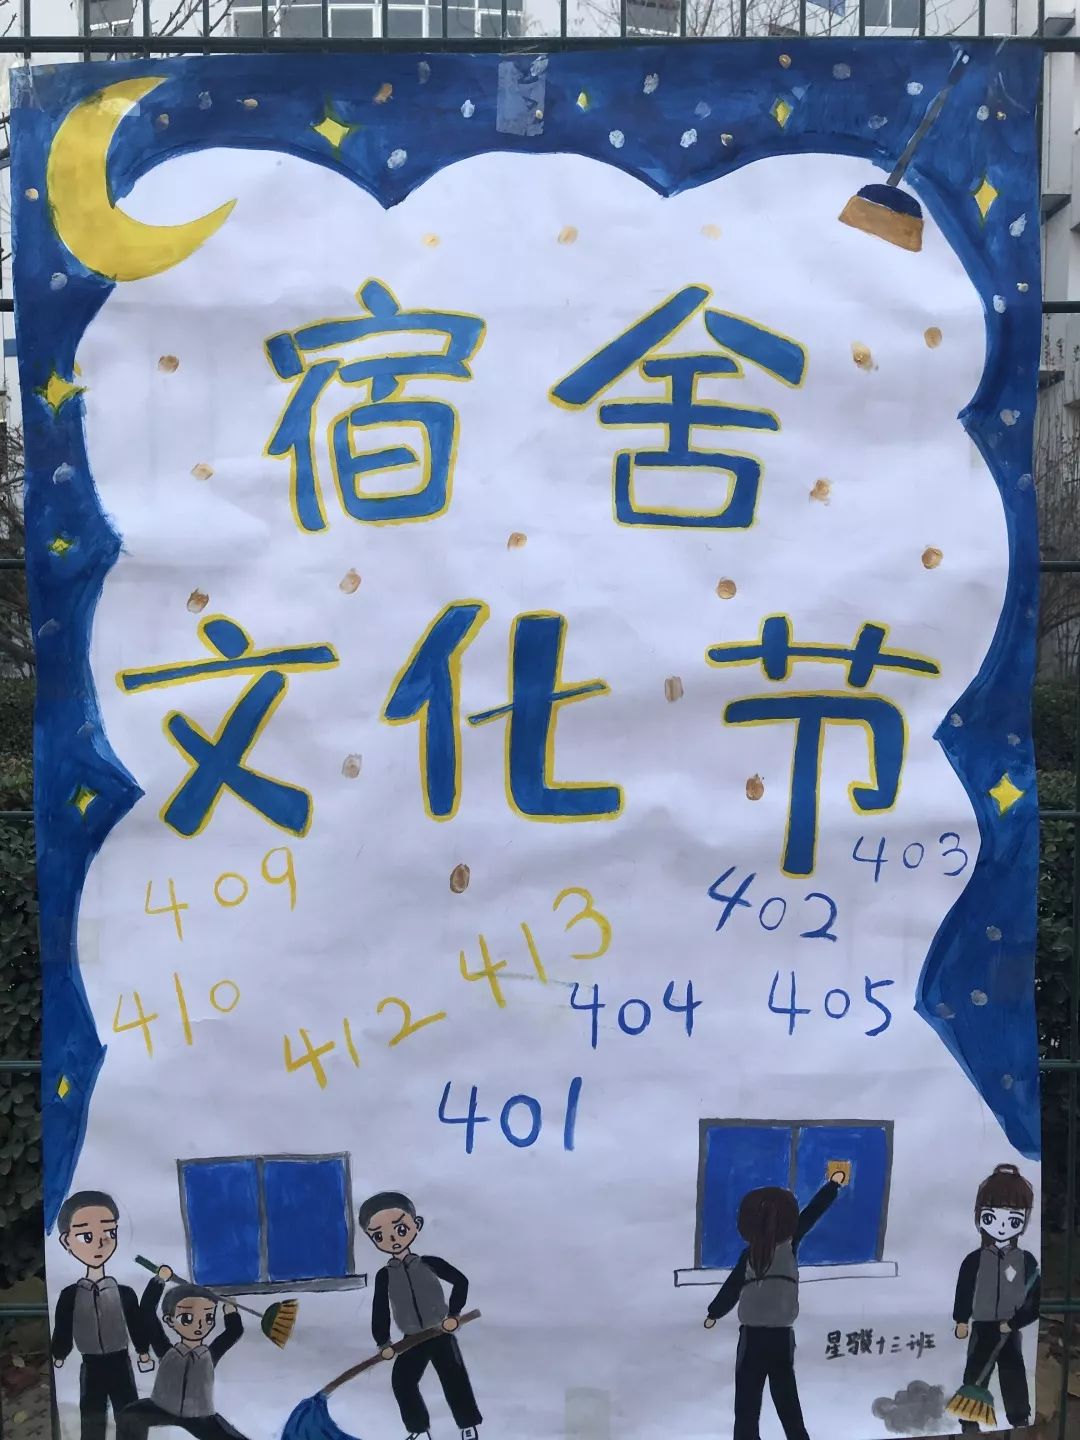 宿舍
文化节
409
403
402
413
410
412
404
405
401
星骥十三班